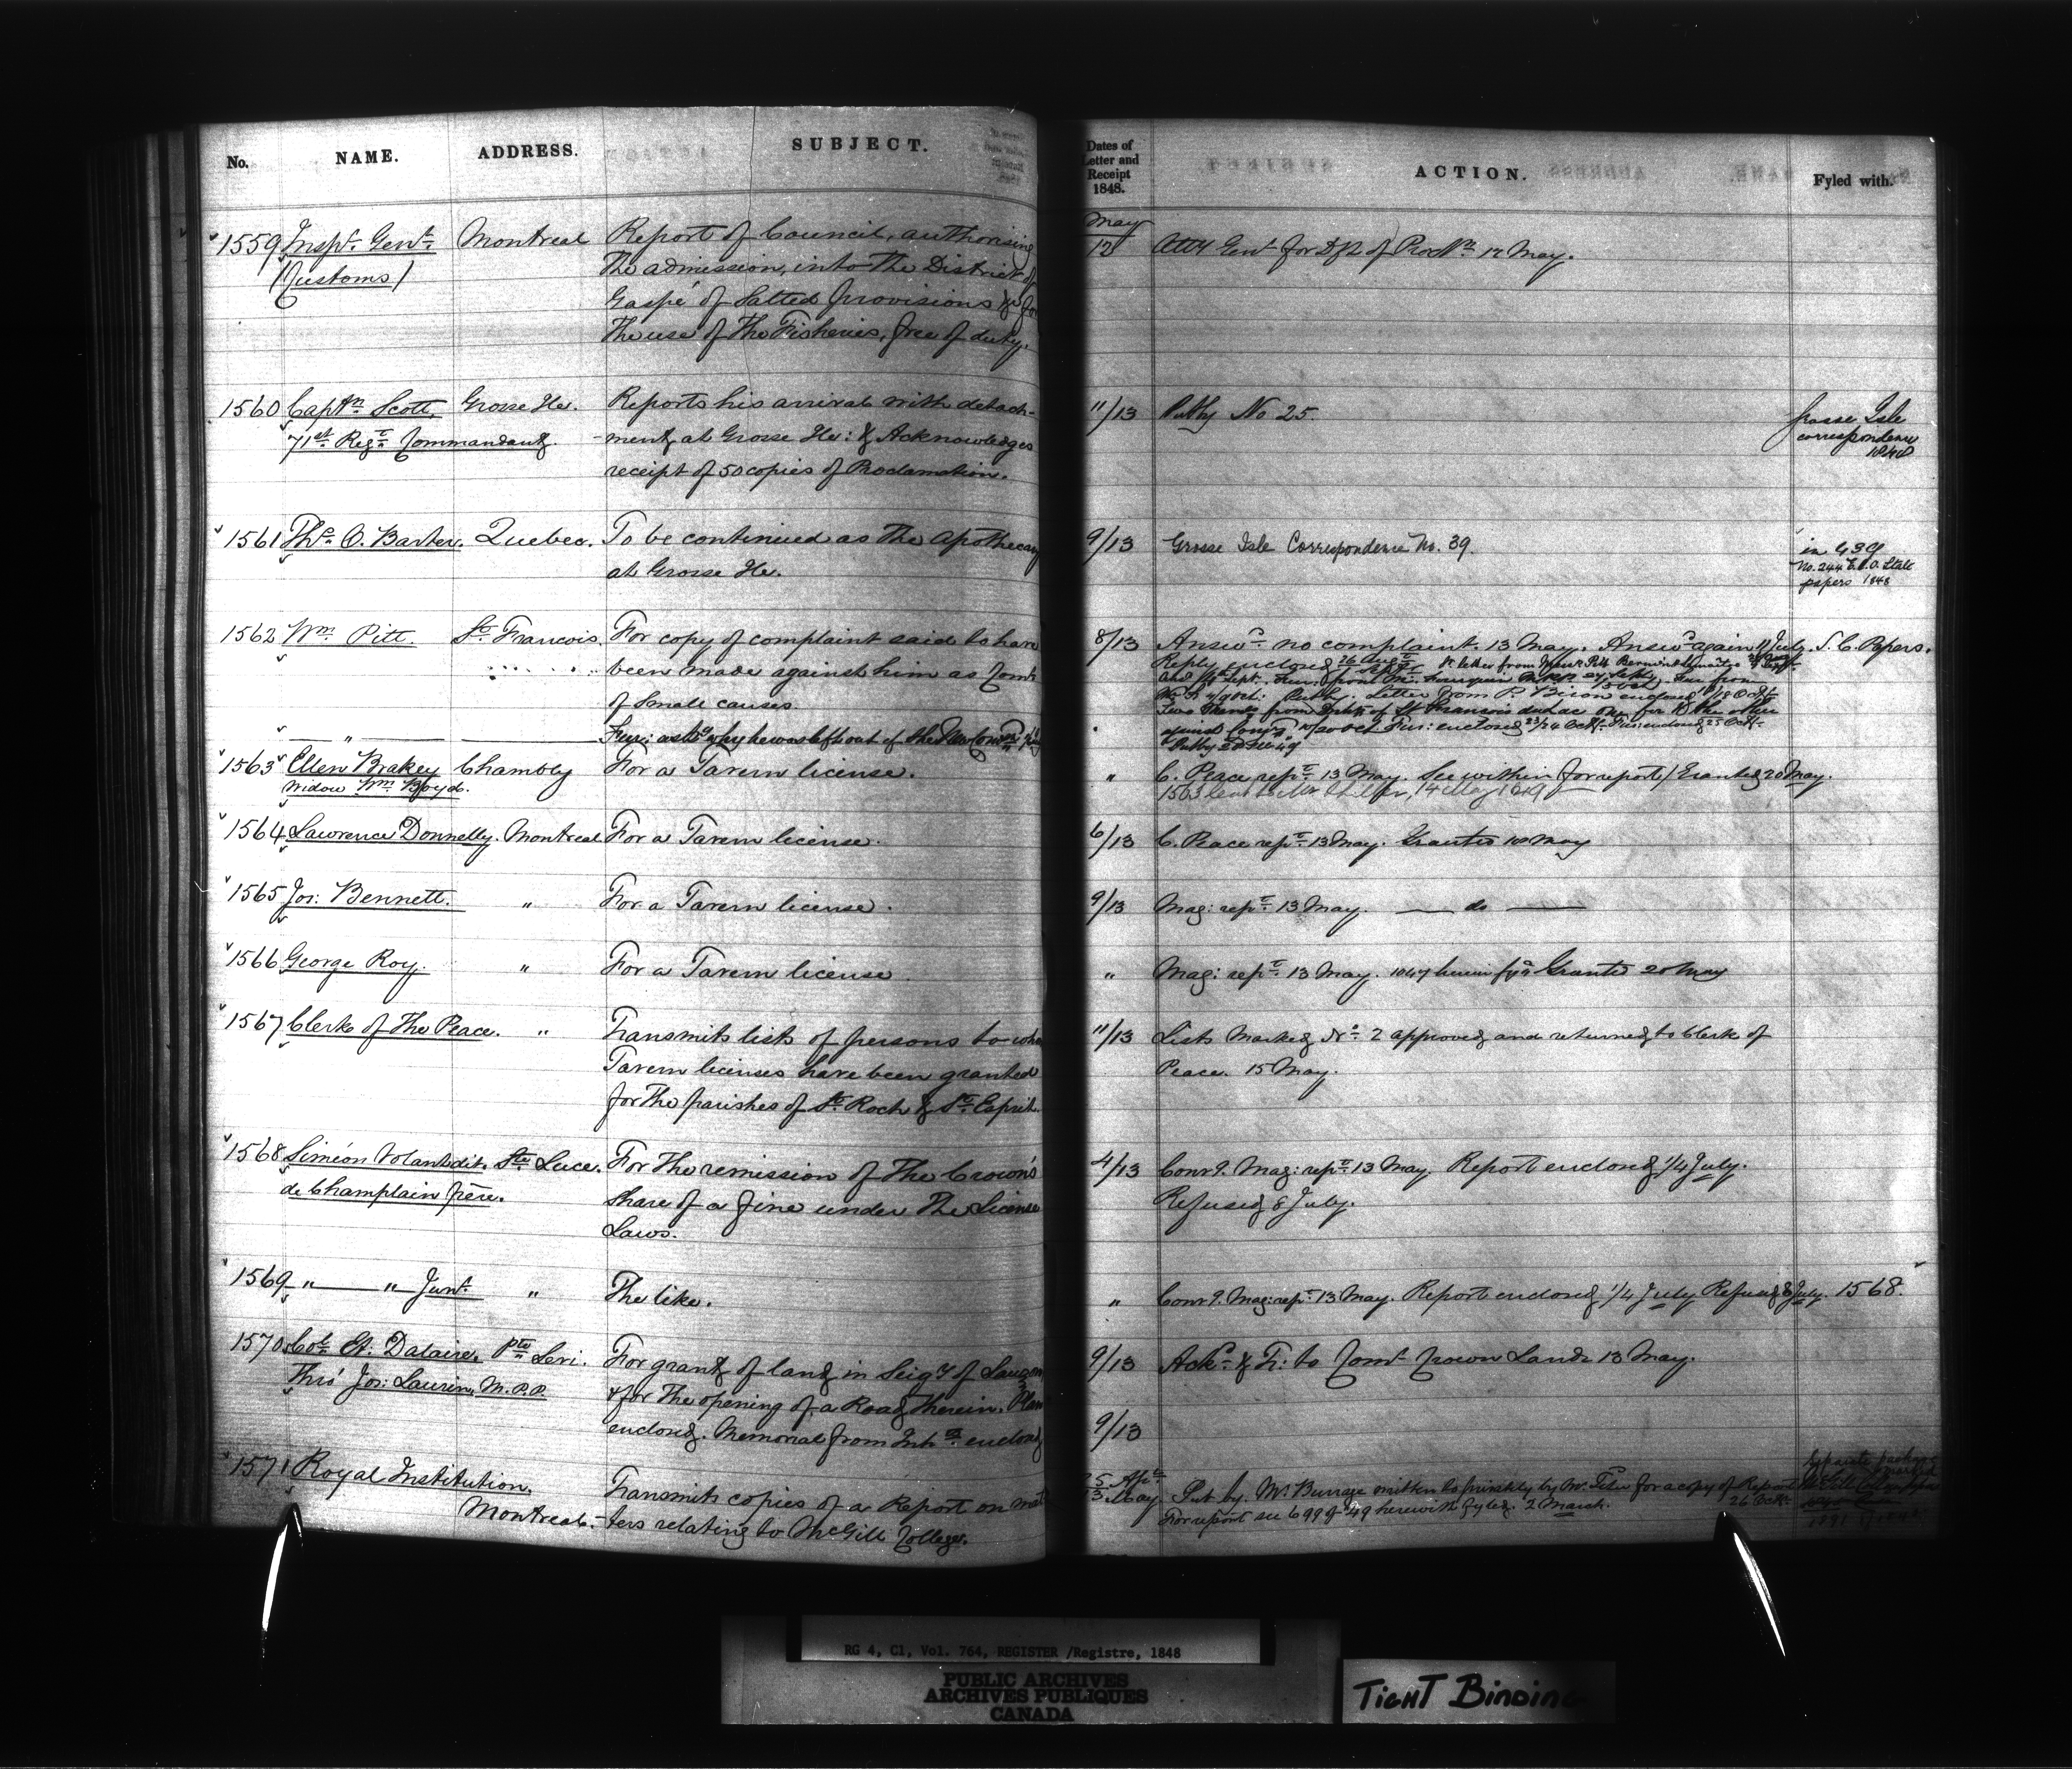 No. NAME. ADDRESS. SUBJECT.
1559 Inspr. Genl. Montreal Report of Council, authorising
(Customs) the admission, into the District of
Gaspé of Salted provisions &c for
the use of the Fisheries, free of duty.
1560 Captn. Scott, Grosse Ile. Reports his arrival with detach-
71st Regt. Commandant. -ment, at Grosse Ile: & Acknowledges
receipt of 50 copies of Proclamation.
1561 Ths. O. Barter. Quebec. To be continued as the apothecary
at Grosse Ile.
1562 Wm. Pitt. St. Francois. For copy of complaint said to have
been made against him as Comr
of Small causes.
" Fur: asks why he was left out of the New Comn
1563 Ellen Brakey Chambly For a Tavern license.
Widow Wm. Boyd.
1564 Lawrence Donnelly. Montreal For a Tavern license.
1565 Jos: Bennett. " For a Tavern license.
1566 George Roy. " For a Tavern license.
1567 Clerk of the Peace. " Transmits lists of persons to whom
Tavern licenses have been granted
for the parishes of St. Roch & St. Esprit.
1568 Siméon Volant dit Ste Luce. For the remission of the Crown's
de Champlain père. Share of a fine under the License
Laws.
1569 " " Junr. " The like.
1570 Col. Et. Dalaire, Pte Levi. For grant of land in Seigy of Lauzon
Thro' Jos: Laurin, M.P.P. & for the opening of a Road therein. Plan
enclosed. Memorial from Inhts. enclosed
1571 Royal Institution, Transmits copies of a Report on mat
Montreal. -ters relating to McGill College.
Dates of
Letter and
Receipt
1848.
ACTION. Fyled with.
May
12 Atty Genl for Dft of Procln. 12 May.
11/13 Put by No 25. Grosse Isle
correspondence
1848
9/13 Grosse Isle Correspondence No. 39. in 439
No. 244 State
papers 1848
8/13 Answd. no complaint. 13 May. Answd again 11 July. S. C. Papers.
Reply enclosed
Letter from P. enclosed
enclosed 23/24 Octr. Fur: enclosed 25 Octr.
" C. Peace rept. 13 May. See within (for report) Granted 20 May.
1563 14 May 1849
6/13 C. Peace rept. 13 May. Granted 10 May
9/13 Mag: rept. 13 May. — do —
" Mag: rept. 13 May. 1047 herein fyd. Granted 20 May
11/13 Lists Marked No. 2 approved, and returned to Clerk of
Peace. 15 May.
4/13 Convg. Mag: rept. 13 May. Report enclosed 1/4 July.
Refused 8 July.
" Convg. Mag: rept. 13 May. Report enclosed 1/4 July Refused 8 July. 1568.
9/13 Ackd. & Tr: to Comr Crown Lands 13 May.
9/13
25 Apl.
13 May Put by. Mr Burrage written to privately by Mr for a copy of Report
26 Octr.
For report see 699 of 49 herewith fyled. 2 March.
Separate package
marked
McGill College
RG 4, C1, Vol. 764, REGISTER /Registre, 1848
PUBLIC ARCHIVES
ARCHIVES PUBLIQUES
CANADA
TIGHT BINDING